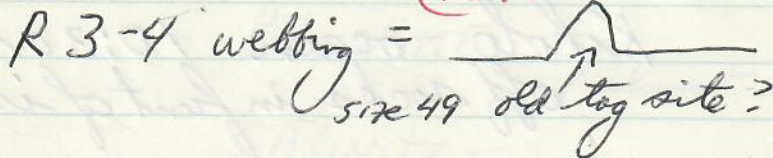 R 3-4 webbing =
size 49 old tag site?